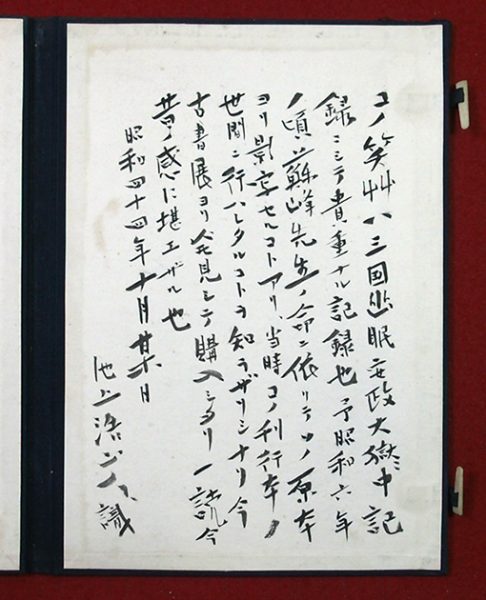 コノ笑艸ハ三国幽眠安政大獄中記
録ニシテ貴重ナル記録也予昭和六年
ノ頃蘇峰先生ノ命ニ依リテソノ原本
ヨリ影写セルコトアリ、当時コノ刊行本ノ
世間ニ行ハレタルコトヲ知ラザリシナリ今
古書展ヨリ発見シテ購入シタリ一読今
昔ノ感に堪エザル也
昭和四十四年十月
池上浩山人識